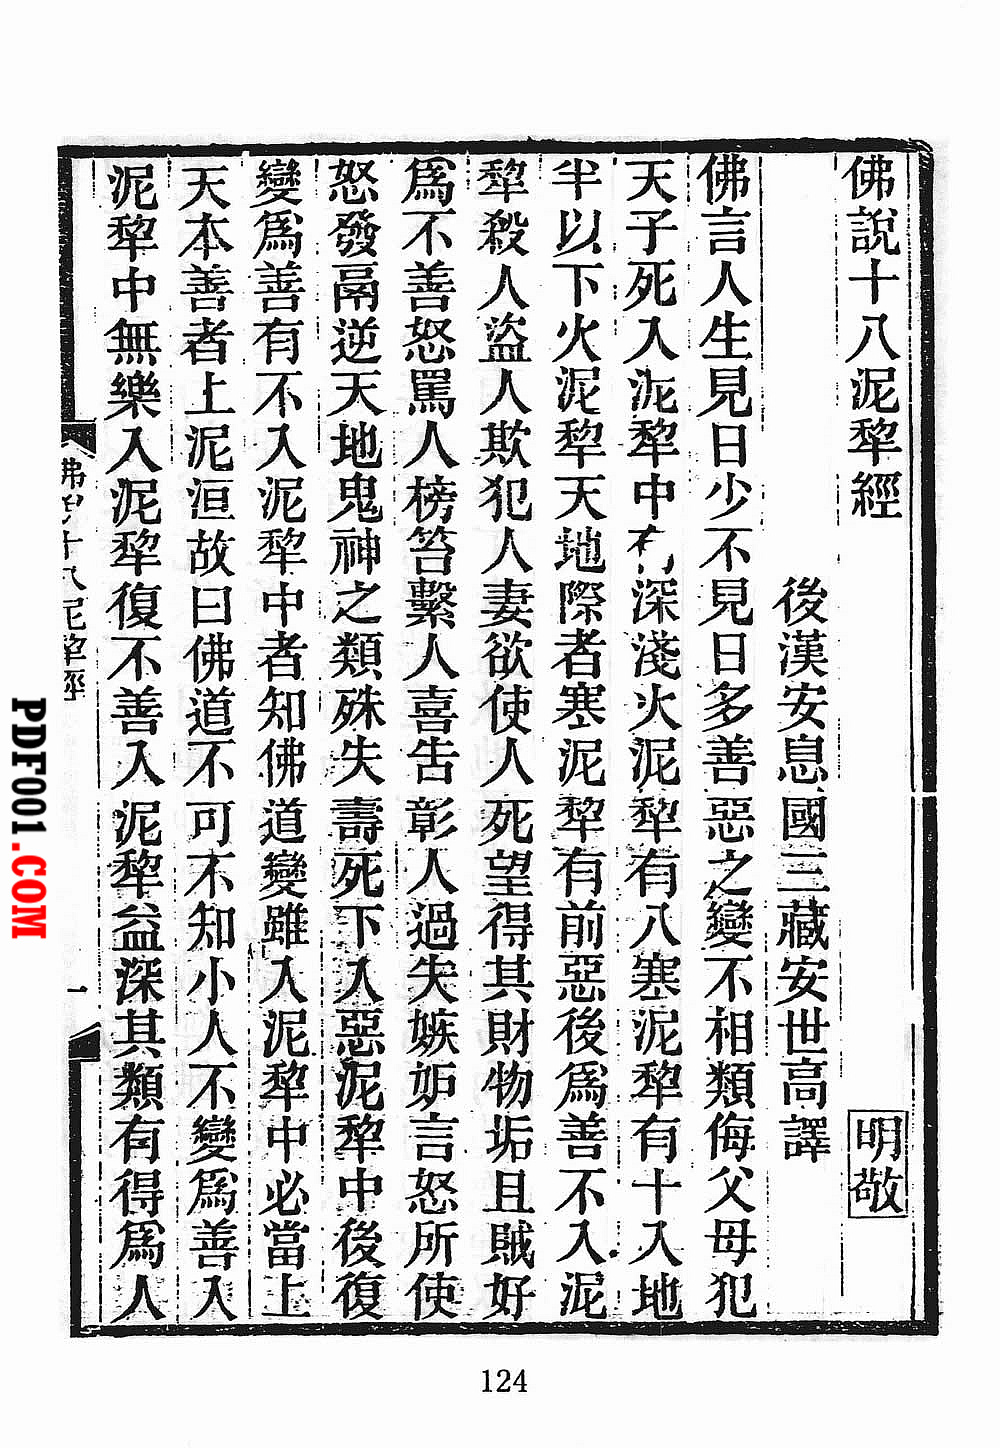 佛說十八泥犂經
明敬
後漢安息國三藏安世高譯
佛言人生見日少不見日多善惡之變不相類侮父母犯
天子死入泥犂中有深淺火泥犂有八寒泥犂有十入地
半以下火泥犂天地際者寒泥犂有前惡後爲善不入泥
犂殺人盜人欺犯人妻欲使人死望得其財物垢且賊好
爲不善怒罵人榜笞繫人喜告彰人過失嫉妒言怒所使
怒發鬲逆天地鬼神之類殊失壽死下入惡泥犂中後復
變爲善有不入泥犂中者知佛道變雖入泥犂中必當上
天本善者上泥洹故曰佛道不可不知小人不變爲善入
泥犂中無樂入泥犂復不善入泥犂益深其類有得爲人
佛說十八泥犂經
一
PDF001.COM
124